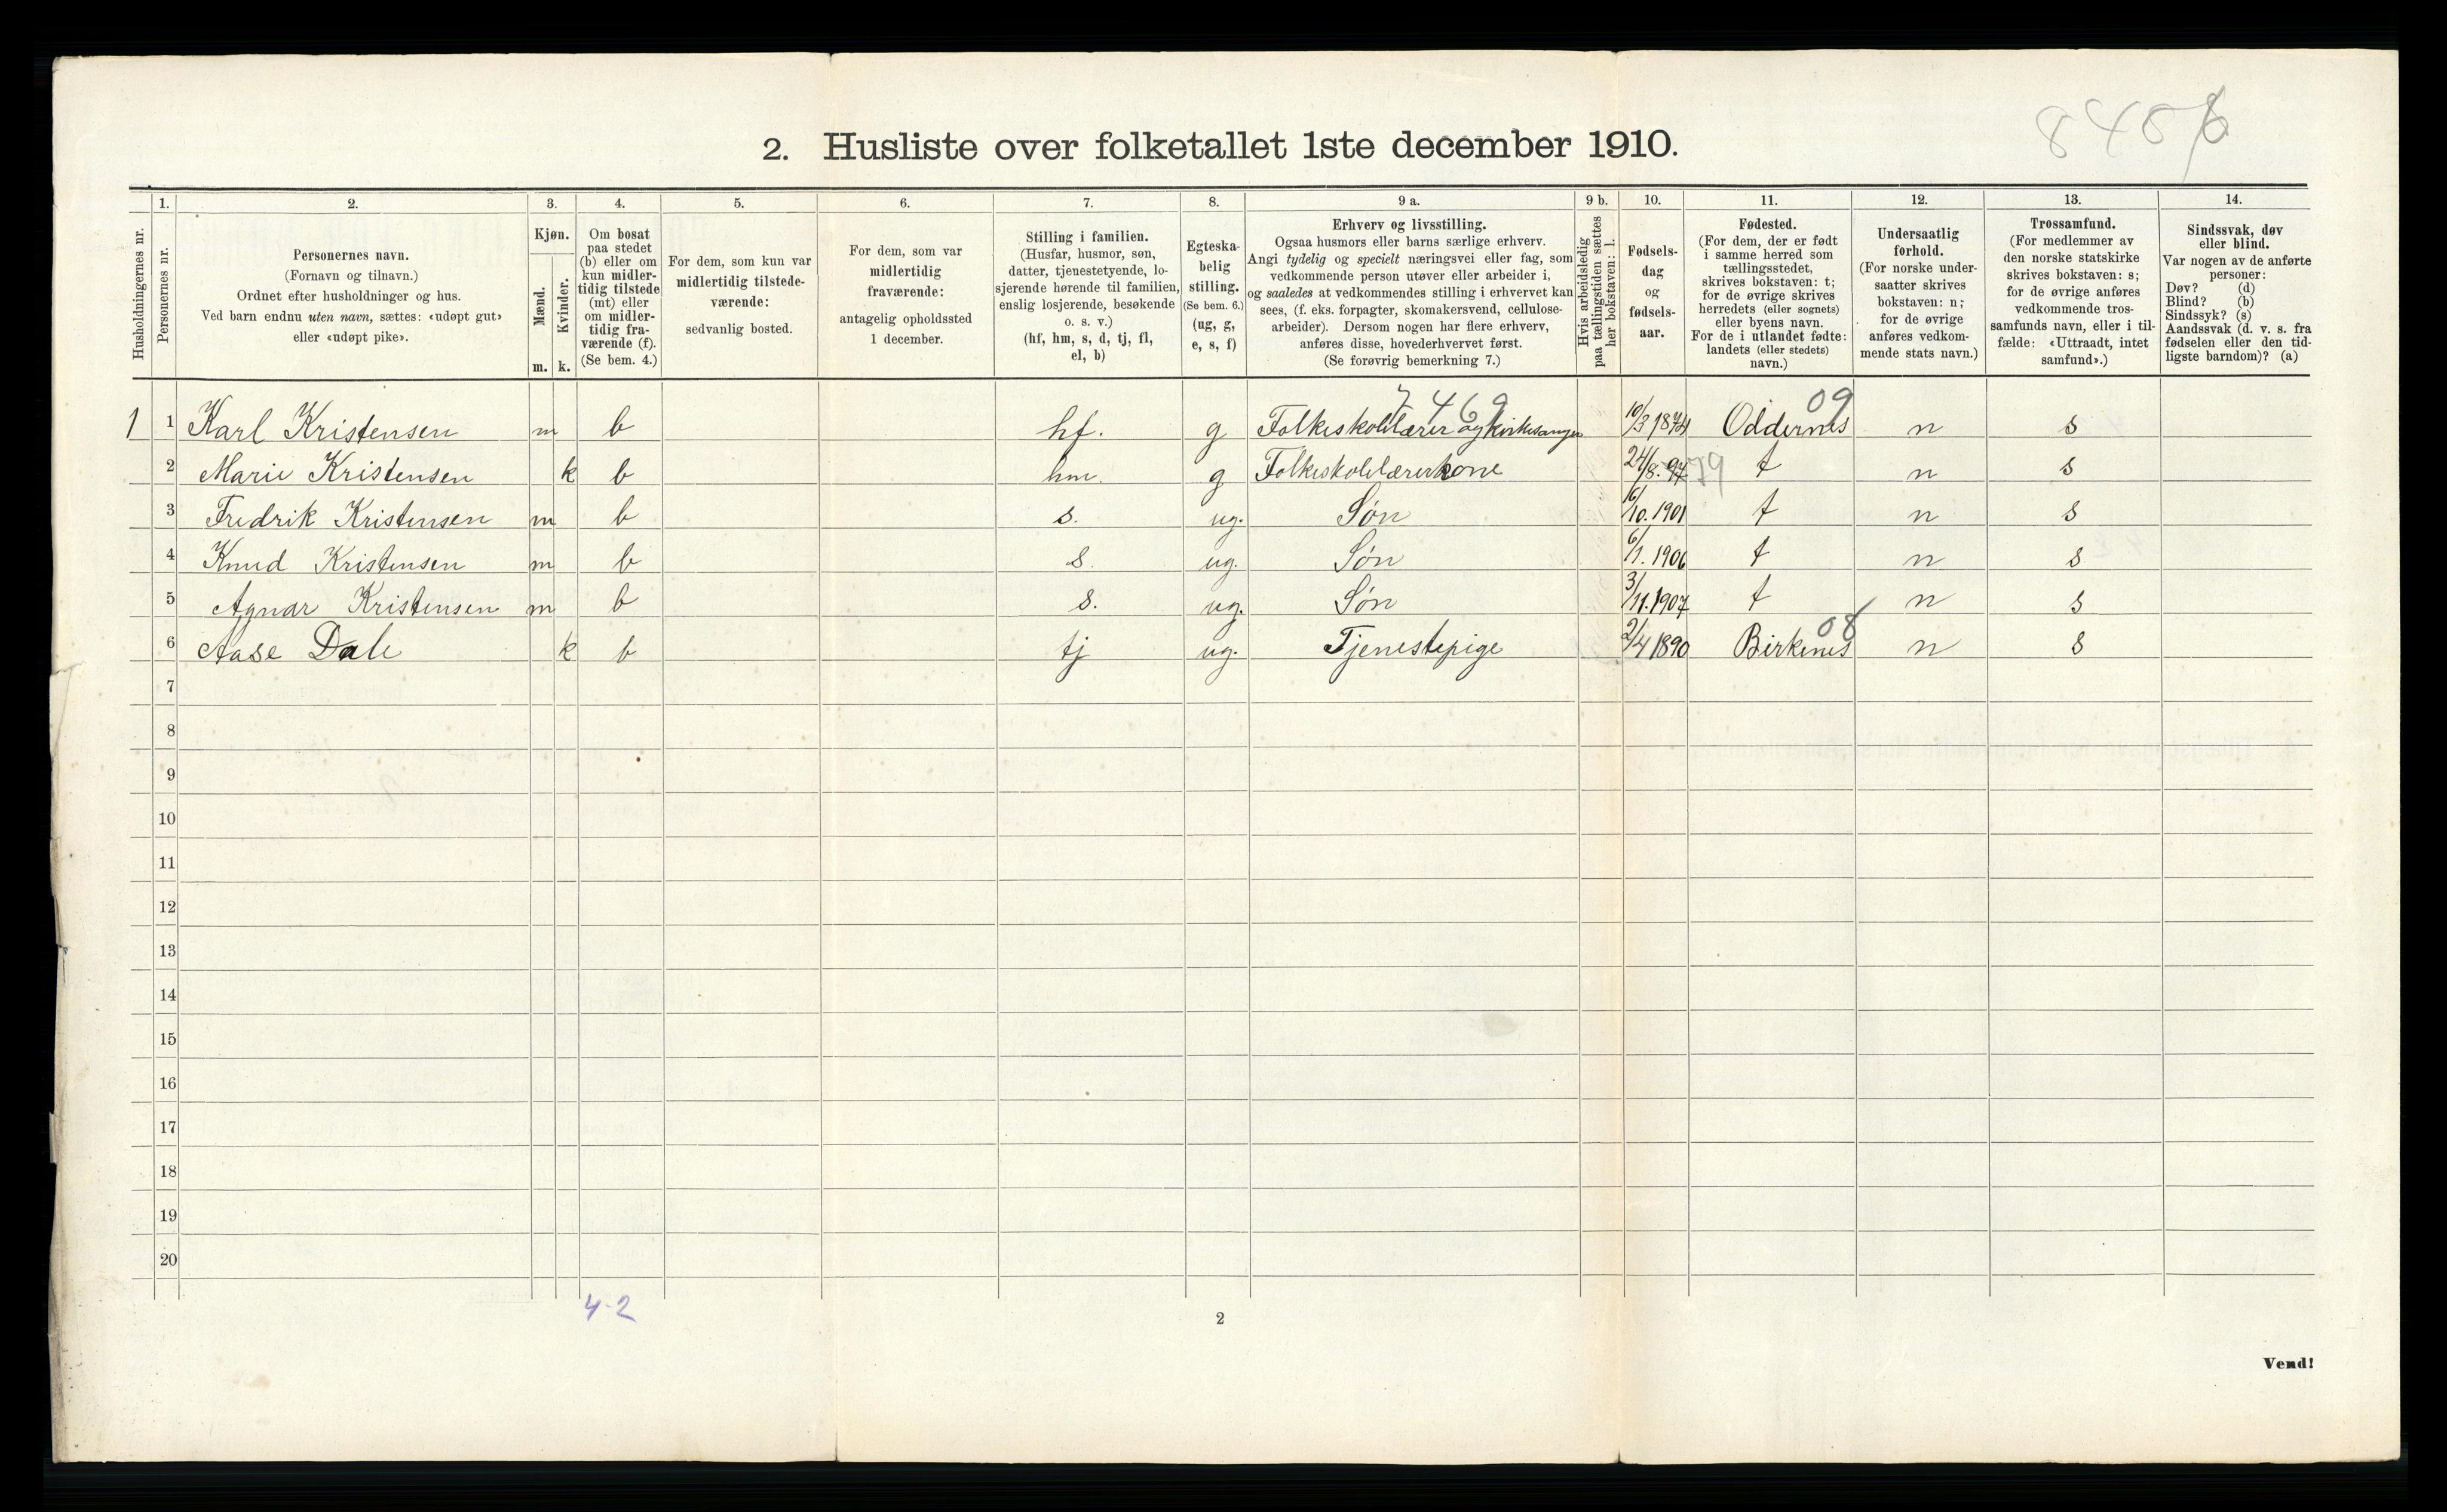 8486
2. Husliste over folketallet 1ste december 1910.
Husholdningernes nr.
1. Personernes nr.
2. Personernes navn.
(Fornavn og tilnavn.)
Ordnet efter husholdninger og hus.
Ved barn endnu uten navn, sættes: «udøpt gut»
eller «udøpt pike».
3. Kjøn.
Mænd. Kvinder.
m. k.
4. Om bosat
paa stedet
(b) eller om
kun midler-
tidig tilstede
(mt) eller
om midler-
tidig fra-
værende (f).
(Se bem. 4.)
5. For dem, som kun var
midlertidig tilstede-
værende:
sedvanlig bosted.
6. For dem, som var
midlertidig
fraværende:
antagelig opholdssted
1 december.
7. Stilling i familien.
(Husfar, husmor, søn,
datter, tjenestetyende, lo-
sjerende hørende til familien,
enslig losjerende, besøkende
o. s. v.)
(hf, hm, s, d, tj, fl,
el, b)
8. Egteska-
belig
stilling.
(Se bem. 6.)
(ug, g,
e, s, f)
9 a. Erhverv og livsstilling.
Ogsaa husmors eller barns særlige erhverv.
Angi tydelig og specielt næringsvei eller fag, som
vedkommende person utøver eller arbeider i,
og saaledes at vedkommendes stilling i erhvervet kan
sees, (f. eks. forpagter, skomakersvend, cellulose-
arbeider). Dersom nogen har flere erhverv,
anføres disse, hovederhvervet først.
(Se forøvrig bemerkning 7.)
9 b. Hvis arbeidsledig
paa tællingstiden sættes
her bokstaven: l.
10. Fødsels-
dag
og
fødsels-
aar.
11. Fødested.
(For dem, der er født
i samme herred som
tællingsstedet,
skrives bokstaven: t;
for de øvrige skrives
herredets (eller sognets)
eller byens navn.
For de i utlandet fødte:
landets (eller stedets)
navn.)
12. Undersaatlig
forhold.
(For norske under-
saatter skrives
bokstaven: n;
for de øvrige
anføres vedkom-
mende stats navn.)
13. Trossamfund.
(For medlemmer av
den norske statskirke
skrives bokstaven: s;
for de øvrige anføres
vedkommende tros-
samfunds navn, eller i til-
fælde: «Uttraadt, intet
samfund».)
14. Sindssvak, døv
eller blind.
Var nogen av de anførte
personer:
Døv? (d)
Blind? (b)
Sindssyk? (s)
Aandssvak (d. v. s. fra
fødselen eller den tid-
ligste barndom)? (a)
7469 09
1 1 Karl Kristensen m b hf. g Folkeskolelærer og kirkesanger 10/3 1874 Oddernes n s
2 Marie Kristensen k b hm. g Folkeskolelærerkone 24/8. 97 79 t n s
3 Fredrik Kristensen m b s. ug. Søn 16/10. 1901 t n s
4 Knud Kristensen m b s. ug. Søn 6/1. 1906 t n s
5 Agnar Kristensen m b s. ug. Søn 3/11. 1907 t n s
08
6 Aase Dale k b tj ug. Tjenestepige 2/4 1890 Birkenes n s
7
8
9
10
11
12
13
14
15
16
17
18
19
20
4-2
2
Vend!